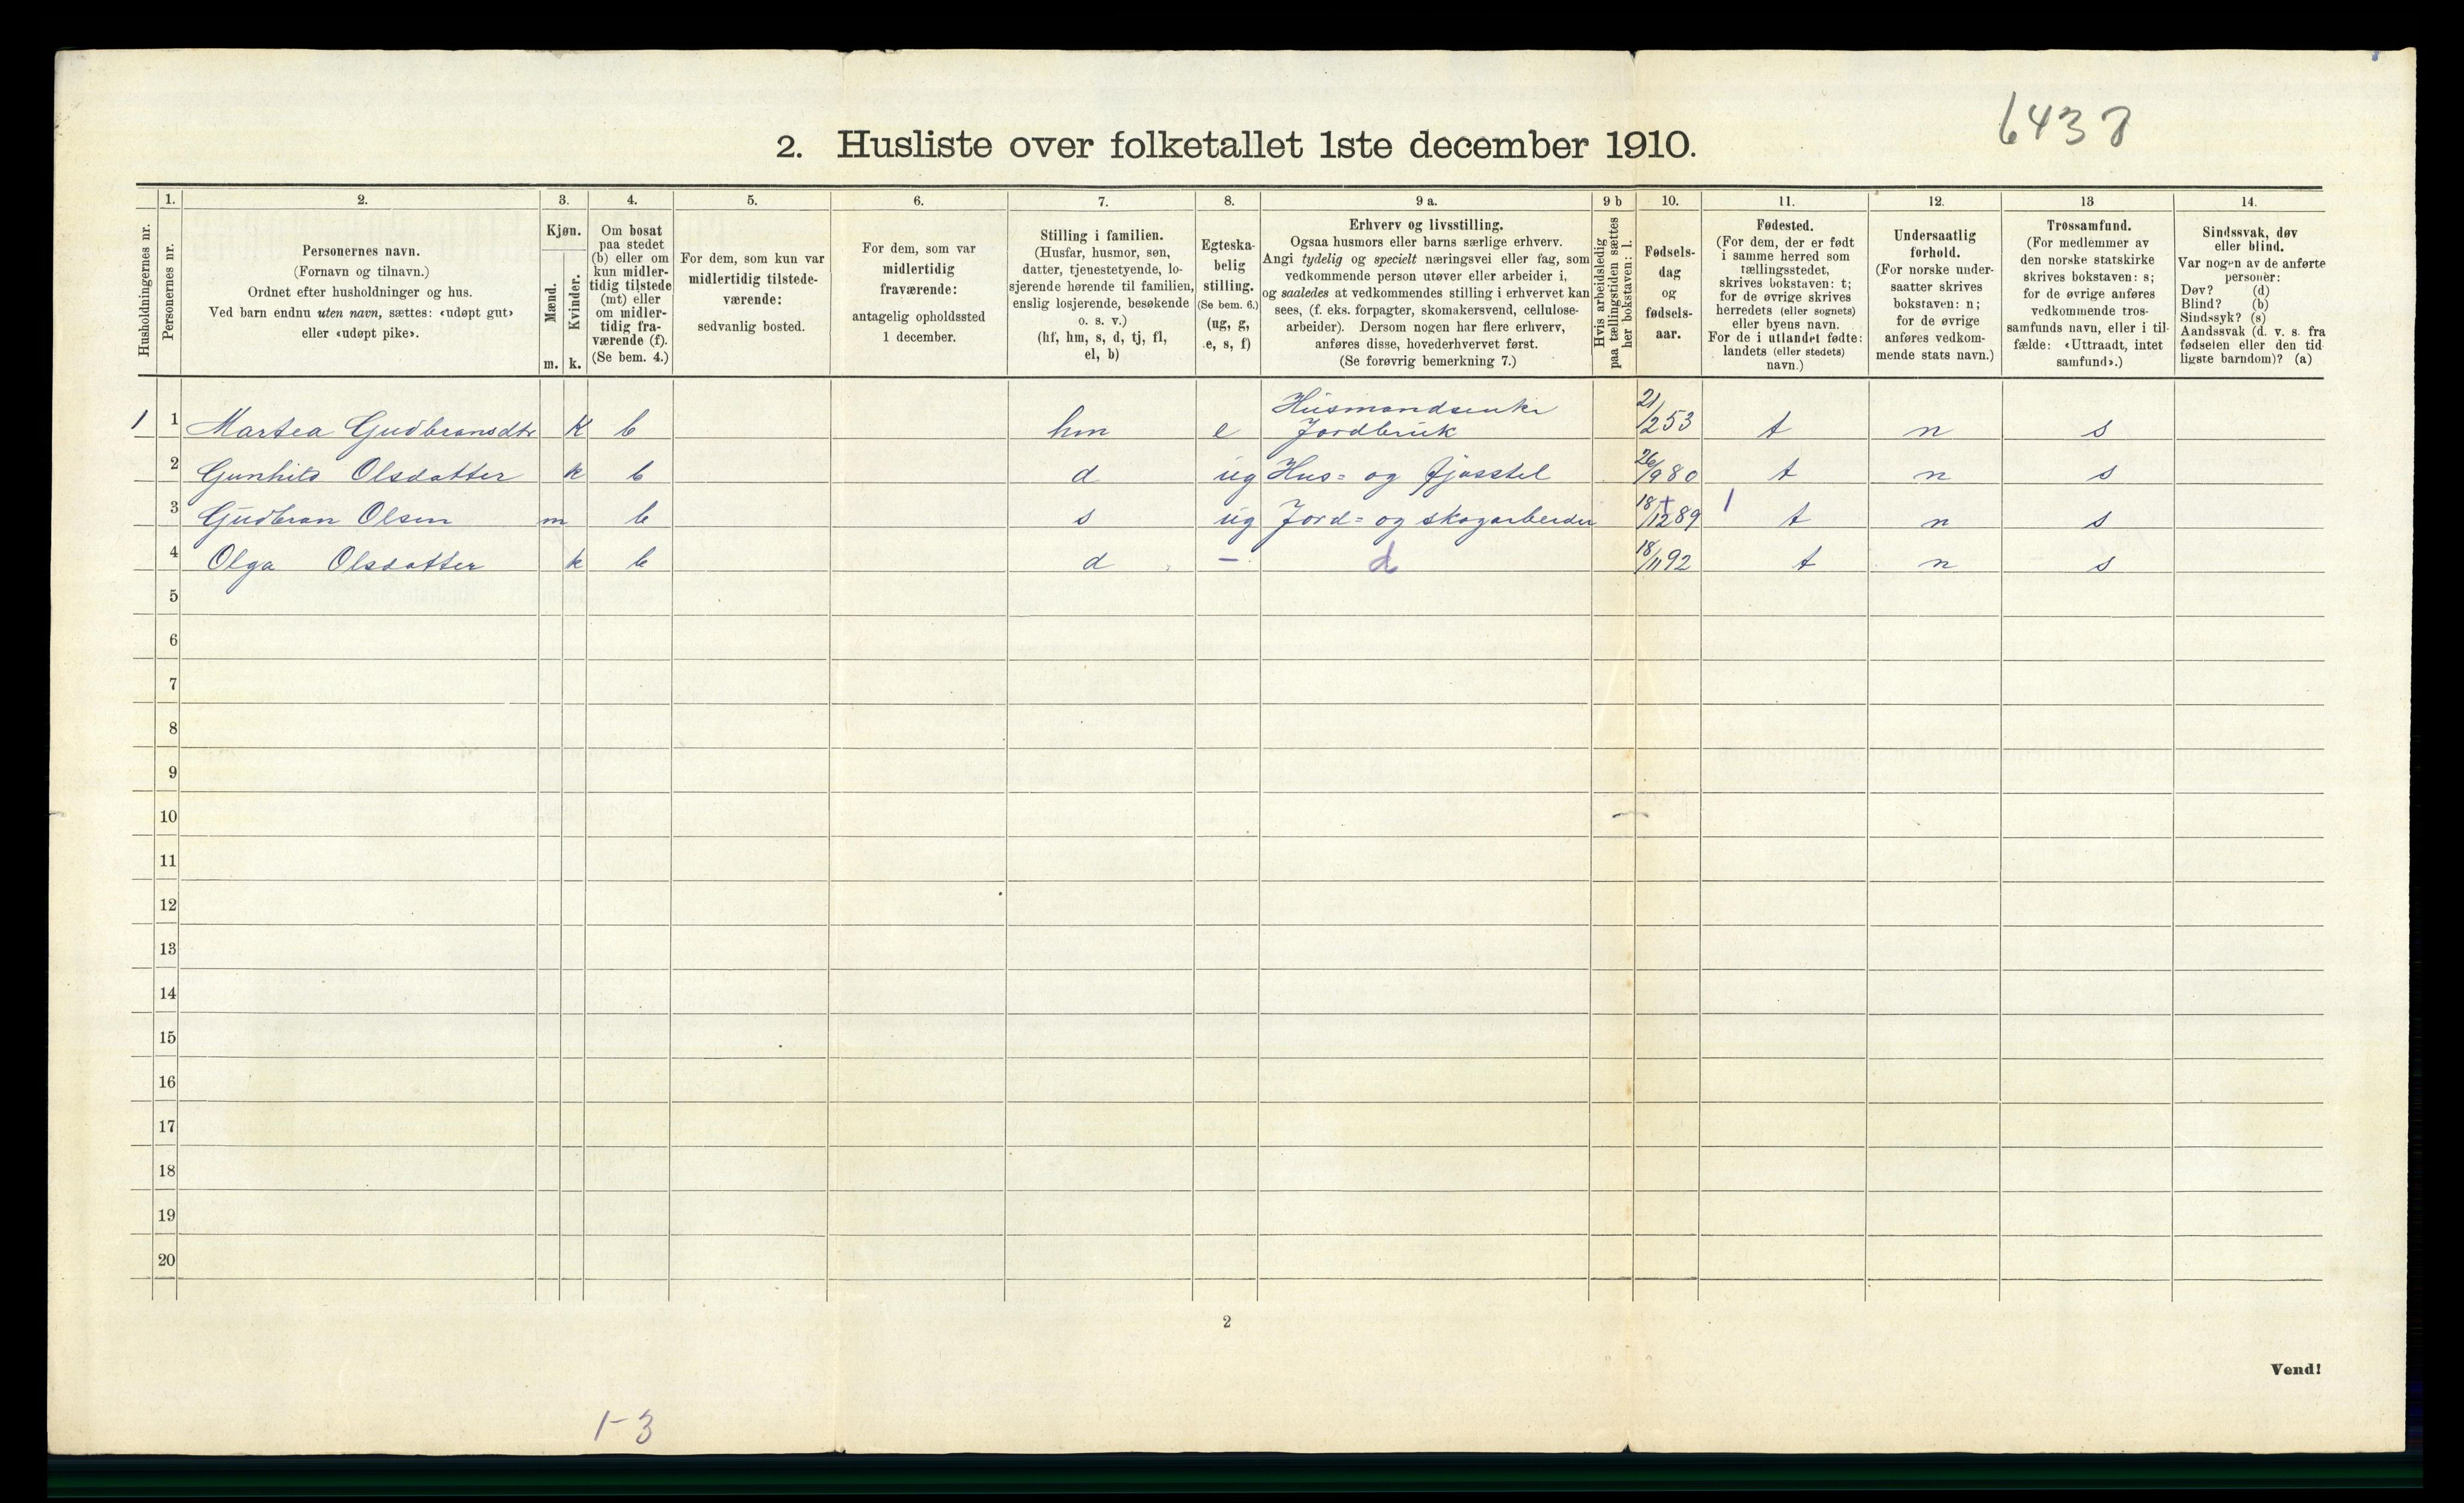 6438
2. Husliste over folketallet 1ste december 1910.
Husholdningernes nr.
1.
Personernes nr.
2.
Personernes navn.
(Fornavn og tilnavn.)
Ordnet efter husholdninger og hus.
Ved barn endnu uten navn, sættes: «udøpt gut»
eller «udøpt pike».
3.
Kjøn.
Mænd.
Kvinder.
m. k.
4.
Om bosat
paa stedet
(b) eller om
kun midler-
tidig tilstede
(mt) eller
om midler-
tidig fra-
værende (f).
(Se bem. 4.)
5.
For dem, som kun var
midlertidig tilstede-
værende:
sedvanlig bosted.
6.
For dem, som var
midlertidig
fraværende:
antagelig opholdssted
1 december.
7.
Stilling i familien.
(Husfar, husmor, søn,
datter, tjenestetyende, lo-
sjerende hørende til familien,
enslig losjerende, besøkende
o. s. v.)
(hf, hm, s, d, tj, fl,
el, b)
8.
Egteska-
belig
stilling.
(Se bem. 6.)
(ug, g,
e, s, f)
9 a.
Erhverv og livsstilling.
Ogsaa husmors eller barns særlige erhverv.
Angi tydelig og specielt næringsvei eller fag, som
vedkommende person utøver eller arbeider i,
og saaledes at vedkommendes stilling i erhvervet kan
sees, (f. eks. forpagter, skomakersvend, cellulose-
arbeider). Dersom nogen har flere erhverv,
anføres disse, hovederhvervet først.
(Se forøvrig bemerkning 7.)
9 b
Hvis arbeidsledig
paa tællingstiden sættes
her bokstaven: l.
10.
Fødsels-
dag
og
fødsels-
aar.
11.
Fødested.
(For dem, der er født
i samme herred som
tællingsstedet,
skrives bokstaven: t;
for de øvrige skrives
herredets (eller sognets)
eller byens navn.
For de i utlandet fødte:
landets (eller stedets)
navn.)
12.
Undersaatlig
forhold.
(For norske under-
saatter skrives
bokstaven: n;
for de øvrige
anføres vedkom-
mende stats navn.)
13
Trossamfund.
(For medlemmer av
den norske statskirke
skrives bokstaven: s;
for de øvrige anføres
vedkommende tros-
samfunds navn, eller i til-
fælde: «Uttraadt, intet
samfund».)
14.
Sindssvak, døv
eller blind.
Var nogen av de anførte
personer:
Døv? (d)
Blind? (b)
Sindssyk? (s)
Aandssvak (d. v. s. fra
fødselen eller den tid-
ligste barndom)? (a)
1 1 Martea Gudbransdtr K b hm e Husmandsenke Jordbruk 21/2 53 t n s
2 Gunhild Olsdatter k b d ug Hus= og fjøsstel 26/9 80 t n s
3 Gudbran Olsen m b s ug Jord= og skogarbeider 18/12 89 t n s
4 Olga Olsdatter k b d - d 18/11 92 t n s
5
6
7
8
9
10
11
12
13
14
15
16
17
18
19
20
2
Vend!
1-3